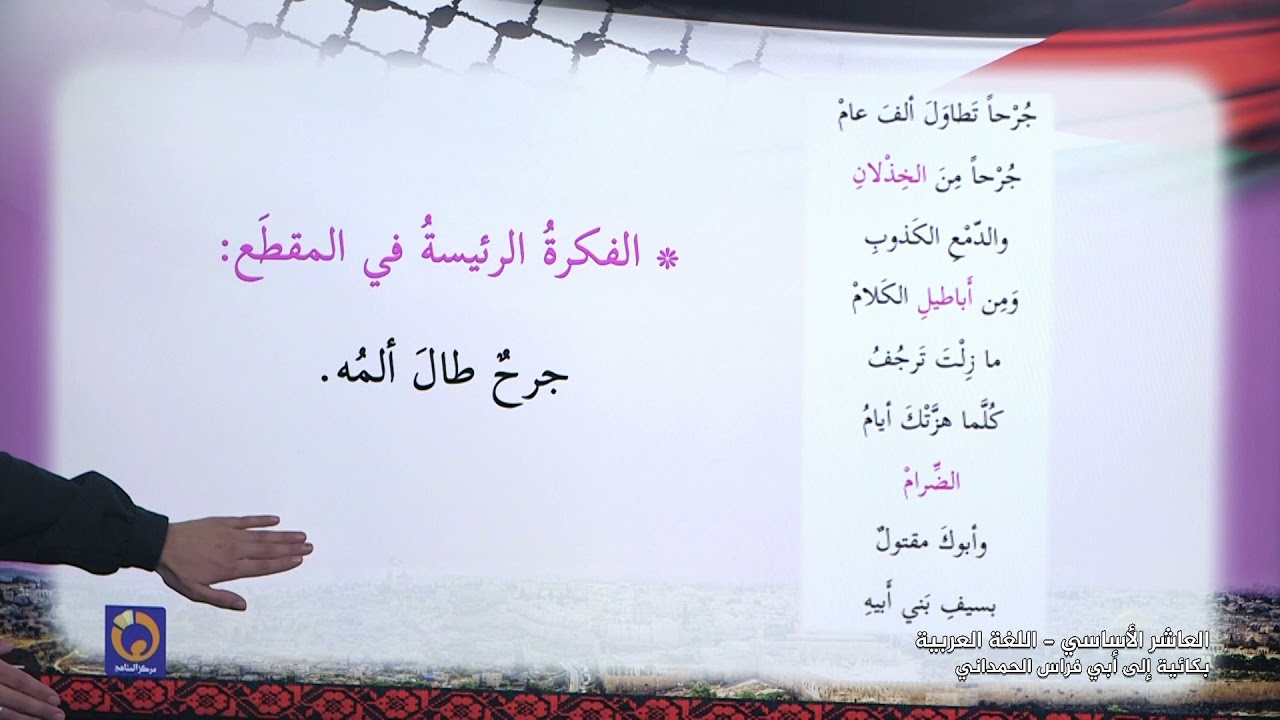 جُرْحاً تَطاوَلَ ألفَ عامْ
جُرْحاً مِنَ الخِذْلانِ
والدّمْعِ الكَذوبِ
وَمِن أَباطيلِ الكَلامْ
ما زِلْتَ تَرجُفُ
كُلَّما هزَّتْكَ أيامُ
الضِّرامْ
وأبوكَ مقتولٌ
بسيفِ بَني أَبيهِ
* الفكرةُ الرئيسةُ في المقطَع:
جرحٌ طالَ ألمُه.
مركز المناهج
العاشر الأساسي - اللغة العربية
بكائية إلى أبي فراس الحمداني